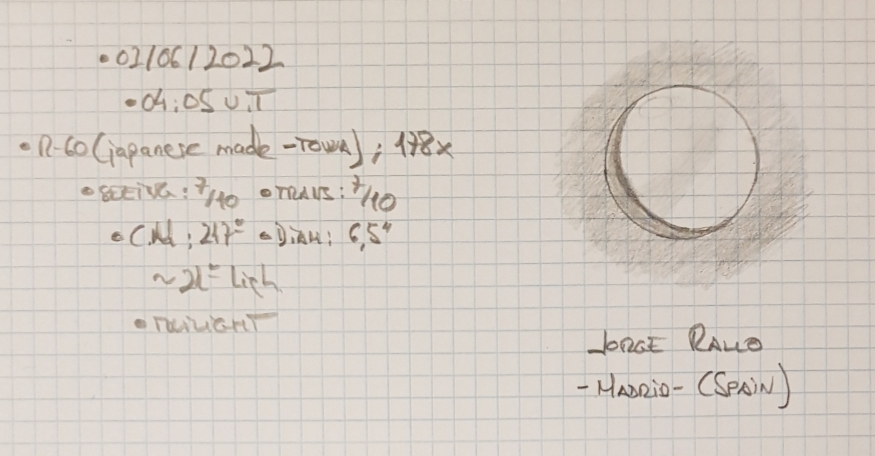 • 02/06/2022
• 04:05 U.T
• R-60 (japanese made -TOWA); 178x
• SEEING: 7/10 • TRANS: 7/10
• C.M: 217º • DIAM: 6,5"
• TWILIGHT
JORGE RALLO
-MADRID- (SPAIN)